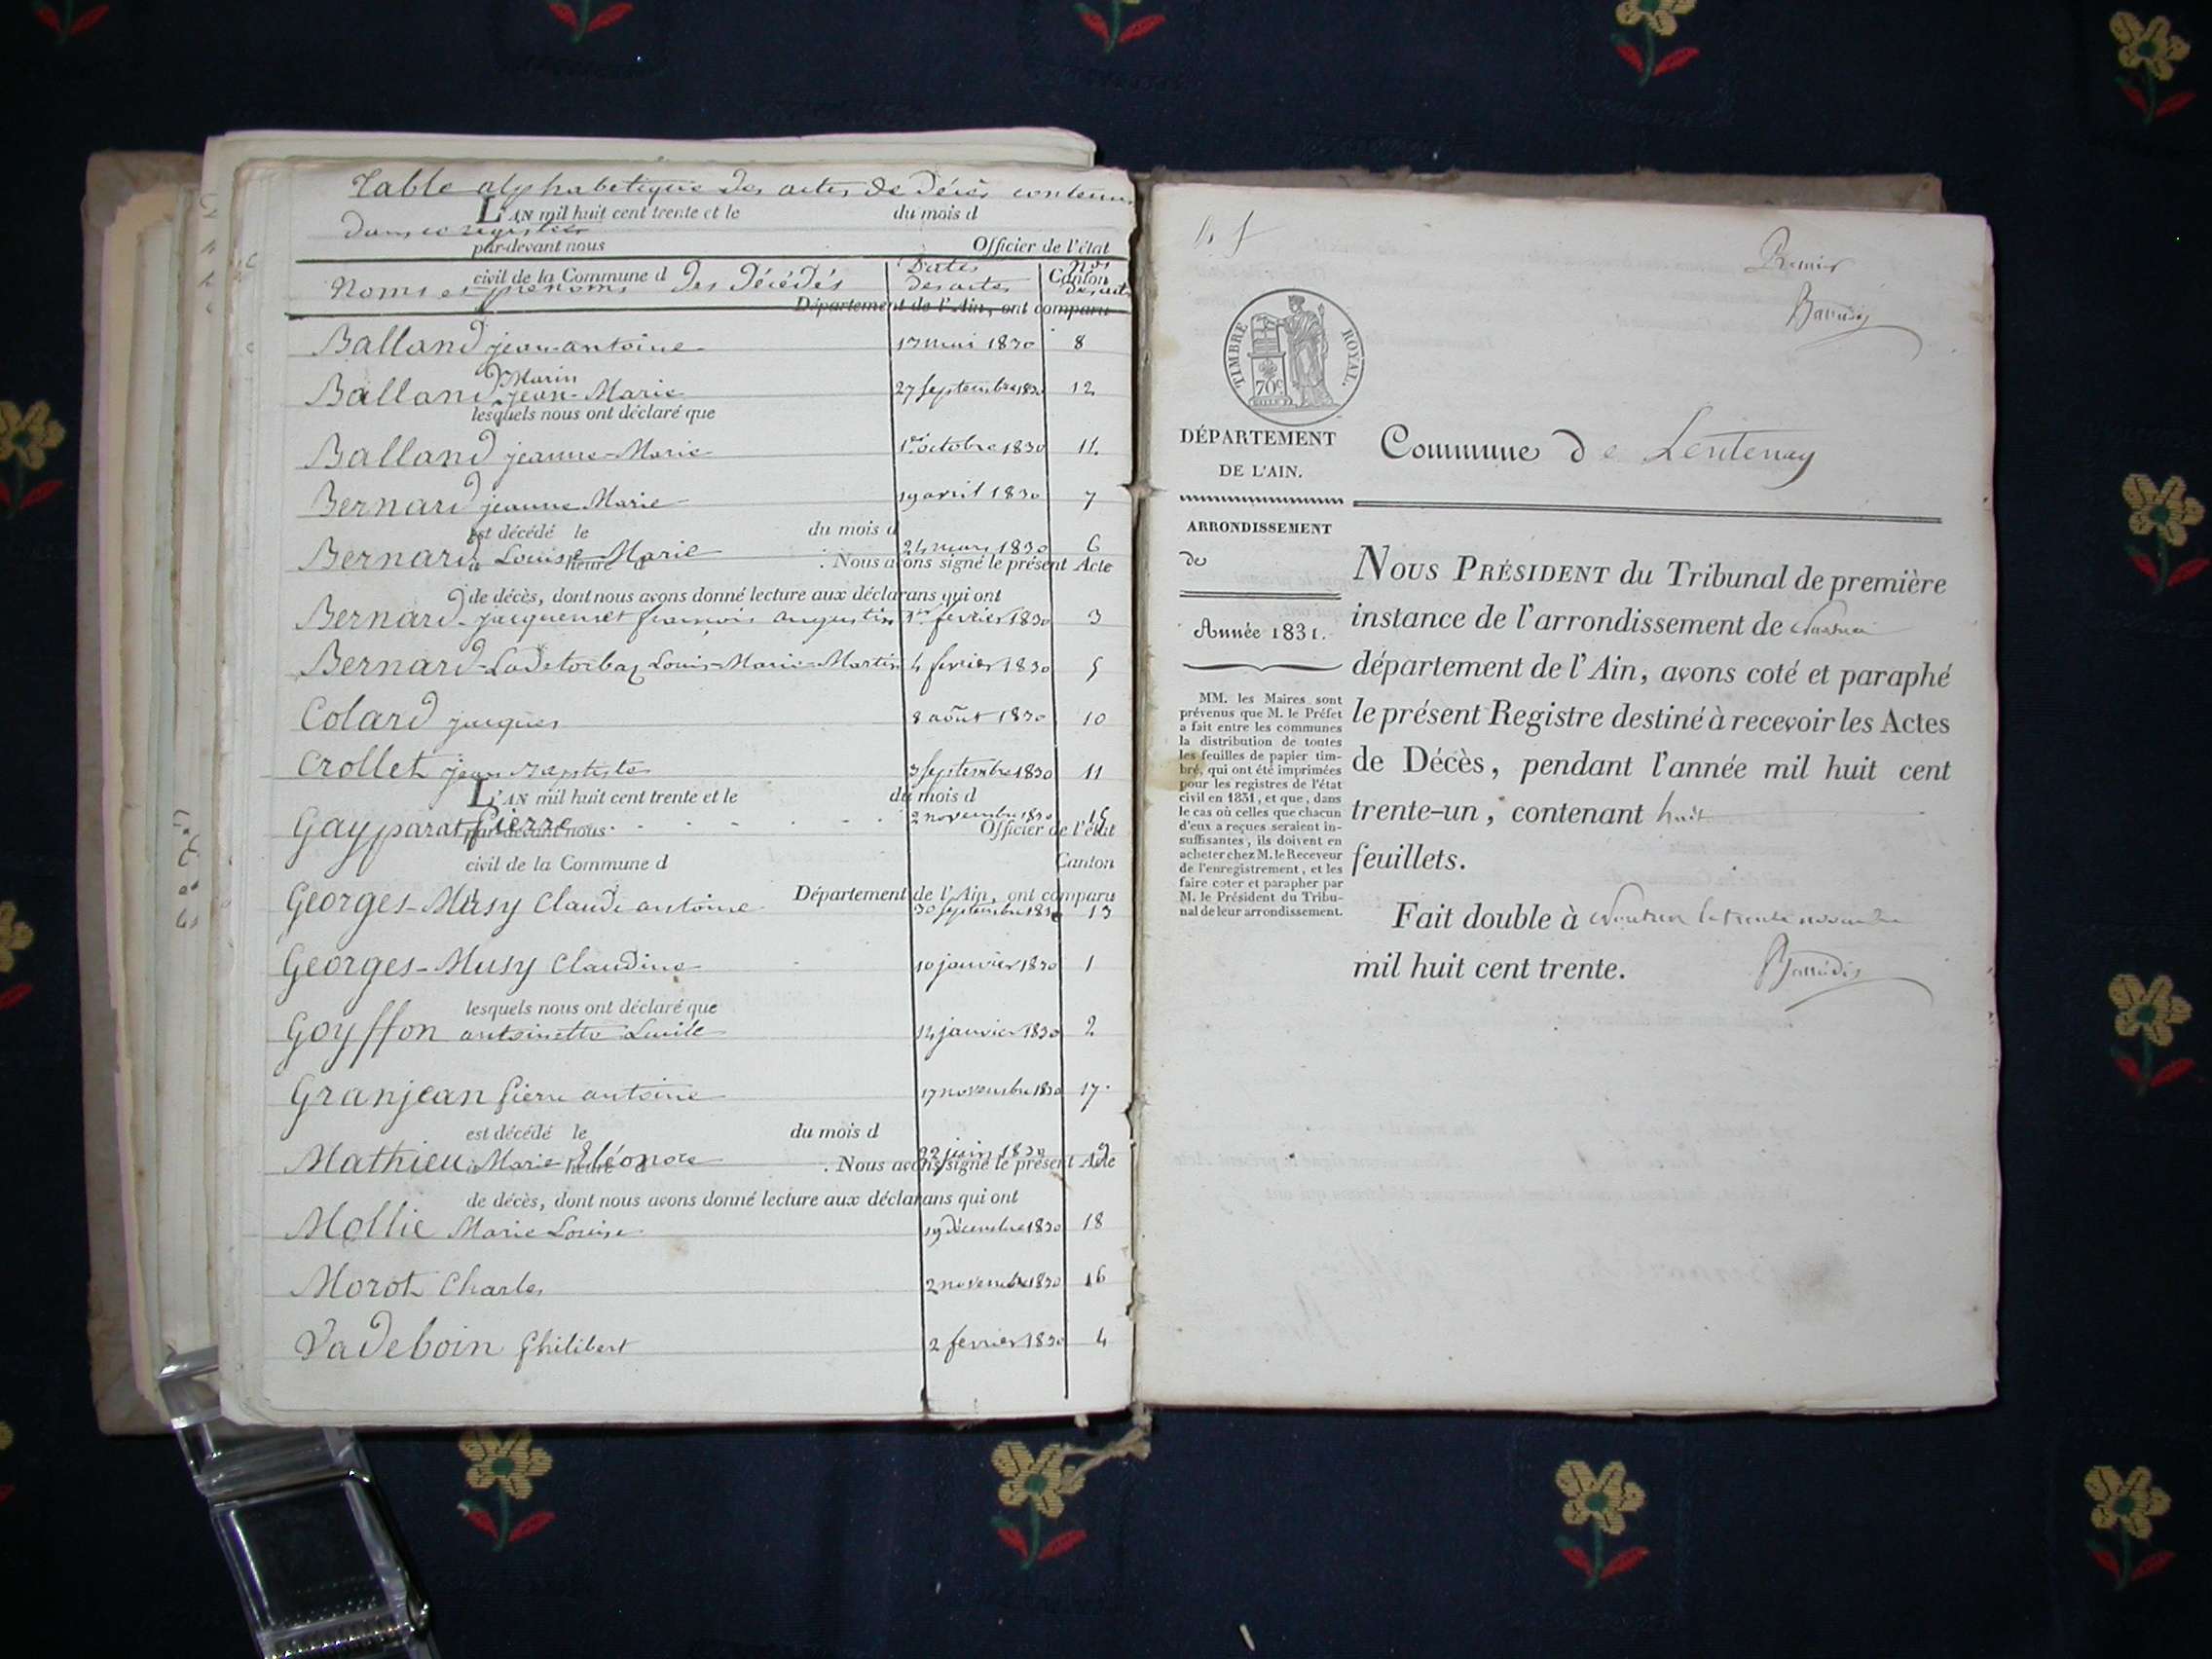 Table alphabetique des actes de décès contenus
L'AN mil huit cent trente et le du mois d
dans ce registre
par-devant nous Officier de l'état
civil de la Commune d Canton
Noms et prénoms des décédés Dates des actes Nos des actes
Département de l'Ain, ont comparu
Balland jean-antoine 17 mai 1830 8
Marin
Balland jean-Marie 27 septembre 1830 12
lesquels nous ont déclaré que
Balland jeanne-Marie 1er octobre 1830
Bernard jeanne Marie 19 avril 1830 7
est décédé le du mois d
Bernard Louise Marie 24 mars 1830 6
à heure d . Nous avons signé le présent Acte
de décès, dont nous avons donné lecture aux déclarans qui ont
Bernard-jacquemet françois augustin 1er fevrier 1830 3
Bernard-Ladetorbaz Louis-Marie-Martin 4 fevrier 1830 5
Colard jacques 8 août 1830 10
Crollet jean Baptiste 3 septembre 1830 11
L'AN mil huit cent trente et le du mois d
Gayparat Pierre 2 novembre 1830 15
par-devant nous Officier de l'état
civil de la Commune d Canton
Département de l'Ain, ont comparu
Georges-Musy Claude antoine 30 septembre 1830 13
Georges-Musy Claudine 10 janvier 1830 1
lesquels nous ont déclaré que
Goyffon antoinette Lucile 14 janvier 1830 2
Granjean Pierre antoine 17 novembre 1830 17
est décédé le du mois d
Mathieu Marie Eléonore 22 juin 1830 9
à heure d . Nous avons signé le présent Acte
de décès, dont nous avons donné lecture aux déclarans qui ont
Mollie Marie Louise 19 décembre 1830 18
Morot Charles 2 novembre 1830 16
Vadeboin Philibert 2 fevrier 1830 4
Premier
TIMBRE ROYAL.
70c
DÉPARTEMENT
DE L'AIN.
Commune de Lentenay
ARRONDISSEMENT
de
Année 1831.
MM. les Maires sont
prévenus que M. le Préfet
a fait entre les communes
la distribution de toutes
les feuilles de papier tim-
bré, qui ont été imprimées
pour les registres de l'état
civil en 1831, et que, dans
le cas où celles que chacun
d'eux a reçues seraient in-
suffisantes, ils doivent en
acheter chez M. le Receveur
de l'enregistrement, et les
faire coter et parapher par
M. le Président du Tribu-
nal de leur arrondissement.
NOUS PRÉSIDENT du Tribunal de première
instance de l'arrondissement de Nantua
département de l'Ain, avons coté et paraphé
le présent Registre destiné à recevoir les Actes
de Décès, pendant l'année mil huit cent
trente-un, contenant huit
feuillets.
Fait double à Nantua le trente novembre
mil huit cent trente.